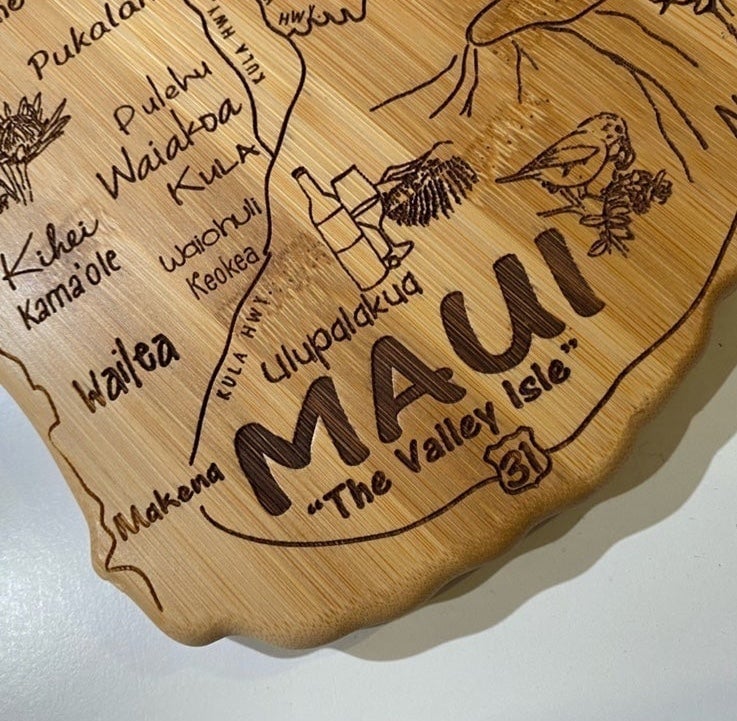 Pukalan
HWY
KULA HWY
Pulehu
Waiakoa
KULA
Waiohuli
Keokea
Kihei
Kama'ole
Wailea
KULA HWY
Ulupalakua
MAUI
"The Valley Isle"
31
Makena